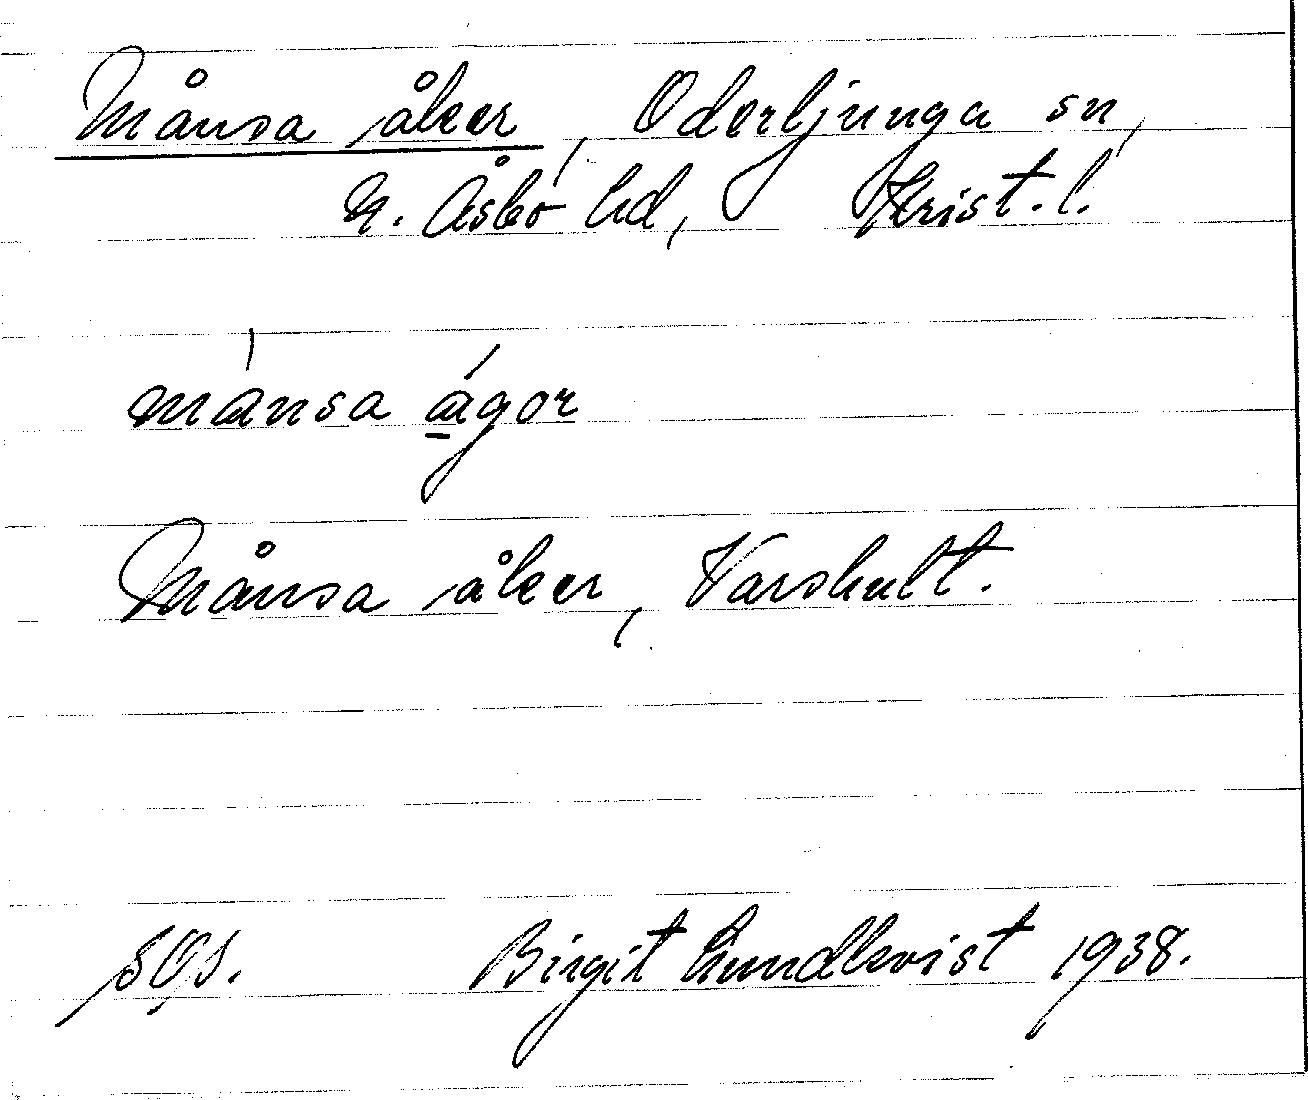 Månsa åker, Oderljunga sn,
N. Åsbo hd, Krist. l.
månsa ågor
Månsa åker, Varshult.
SOS. Birgit Lundkvist 1938.